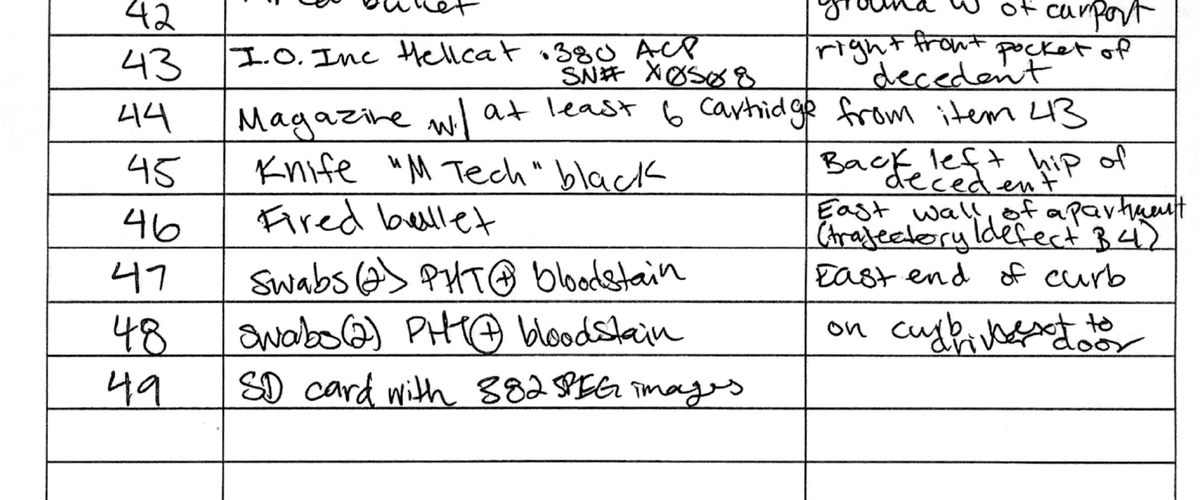 42 Fired bullet ground W of carport
43 I.O. Inc Hellcat .380 ACP right front pocket of
SN# XØ5Ø8 decedent
44 Magazine w/ at least 6 cartridge from item 43
45 Knife "M Tech" black Back left hip of
decedent
46 Fired bullet East wall of apartment
(trajectory/defect B4)
47 Swabs(2) PHT⊕ bloodstain East end of curb
48 Swabs(2) PHT⊕ bloodstain on curb next to
driver door
49 SD card with 382 JPEG images